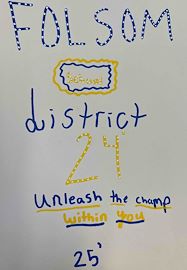 FOLSOM
district
24'
Unleash the champ
within you
25'